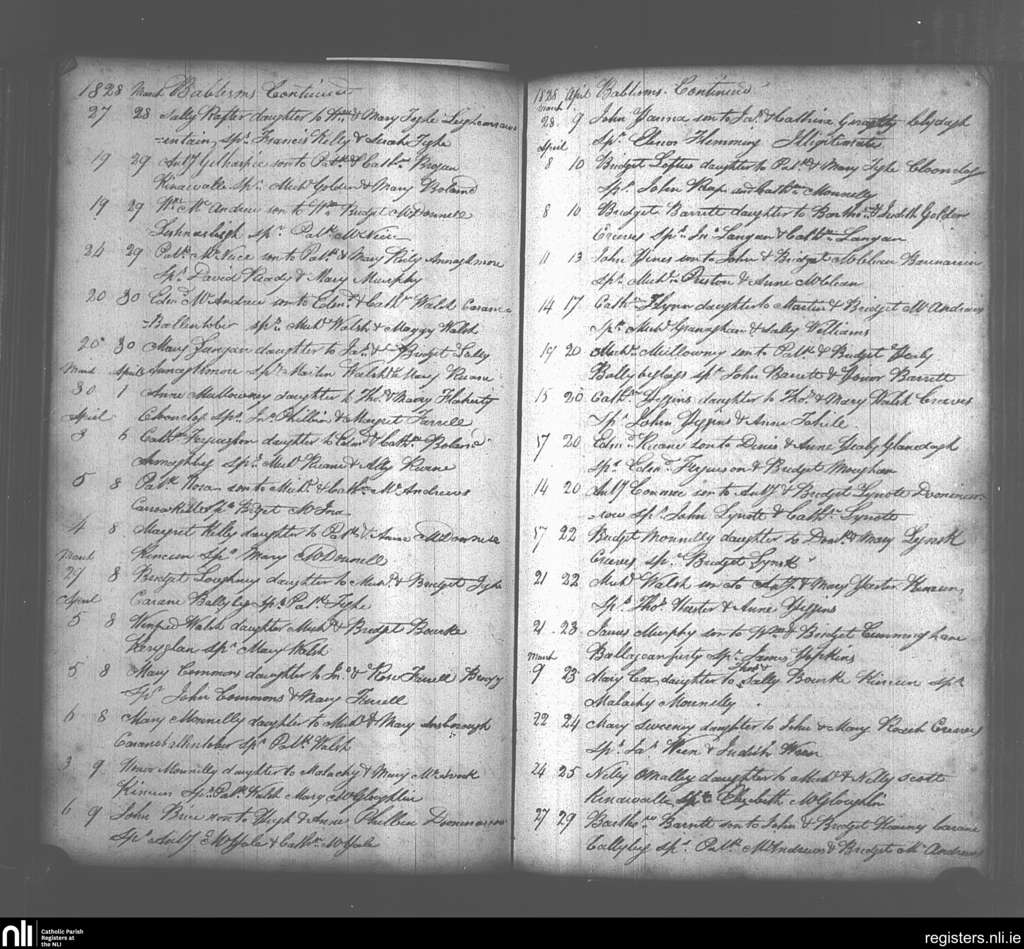 1828 March Babtisms Continued
27 28 Sally Rafter daughter to Wm & Mary Tighe
Spr. Francis Kelly & Sarah Tighe
19 29 Anty son to Patk & Cathn Bryan
Kinavalla Sp. Michl Golden & Mary Boland
19 29 Wm Mc Andrew son to Wm & Bridget McDonnell
spr. Patk McNiece
24 29 Patk McNiece son to Patk & Mary Kiely Annaghmore
Spr David Keady & Mary Murphy
20 30 Edmd McAndrew son to Edmd & Cathn Walsh Carane
Ballintober spr. Michl Walsh & Maggy Walsh
25 30 Mary Langan daughter to Jas. & Bridget Lally
March April Annaghmore Spr Martin Walsh & Mary Ruane
30 1 Anne Mullowney daughter to Thos & Mary Flaherty
April Cloonclof Spr. Jno Phillin & Margret Farrell
3 5 Cathn Ferguson daughter to Edmd & Cathn Boland
Spr. Michl Ruane & Ally Ruane
5 8 Patk son to Michl & Cathn Mc Andrews
Bridget
4 8 Margret Kelly daughter to Patk & Anne McDonnell
March Kincun Spr Mary McDonnell
27 8 Bridget Loughney daughter to Michl & Bridget Tighe
April Carane Ballybeg Sp. Patk Tighe
5 8 Winfred Walsh daughter Michl & Bridget Bourke
spr. Mary Walsh
5 8 Mary Commons daughter to Jno. & Rose Farrell
Spr John Commons & Mary Farrell
6 8 Mary Monnelly daughter to Michl & Mary
Caraneballintober spr Patk Walsh
3 9 Honor Monnelly daughter to Malachy & Mary
Kincun Spr Patk Walsh Mary McGloughlin
6 9 John Brien son to Hugh & Anne Philben
Spr Anty McHale & Cathn McHale
1828 April Babtisms Continued
March
28 9 John son to Jas. & Cathrine Geraghty
April Spr. Elenor Flemming Illigitimate
8 10 Bridget Loftus daughter to Patk & Mary Tighe Cloonclof
Spr. John Reap and Cathn Monnelly
8 10 Bridget Barrett daughter to Bartho. & Judith Golden
Creeves spr. Jno Langan & Cathn Langan
11 13 John Hines son to John & Bridget McElean
Spr. Michl Preston & Anne McElean
14 17 Cathn Flynn daughter to Martin & Bridget Mc Andrew
Spr Michl Granaghan & Sally Williams
19 20 Michl Mullowney son to Patk & Bridget Healy
spr John Barrett & Honor Barrett
15 20 Cathn Higgins daughter to Thos. & Mary Walsh Creeves
Spr. John Higgins & Anne Cahile
17 20 Edmd Ruane son to Denis & Anne Healy
Spr. Edmd Ferguson & Bridget Moughan
14 20 Anty Conmee son to Anty & Bridget Lynott
spr. John Lynott & Cathn Lynott
17 22 Bridget Monnelly daughter to & Mary Lynott
Creeves spr. Bridget Lynott
21 22 Michl Walsh son to & Mary Harter Kincun
Spr. Thos. Harter & Anne Higgins
21 23 James Murphy son to Wm & Bridget Cunningham
March Spr. James Hopkins
9 23 Mary Cox daughter to Thos & Sally Bourke Kincun spr
Malachy Monnelly
22 24 Mary Sweeney daughter to John & Mary Roach Creeves
Spr. Jas & Judith
24 25 Nelly OMalley daughter to Michl & Nelly Scott
Kinavalla spr Elizabeth McGloughlin
27 29 Bartho. Barrett son to John & Bridget Carane
Ballybeg spr. Patk McAndrews & Bridget McAndrew
nli Catholic Parish Registers at the NLI
registers.nli.ie